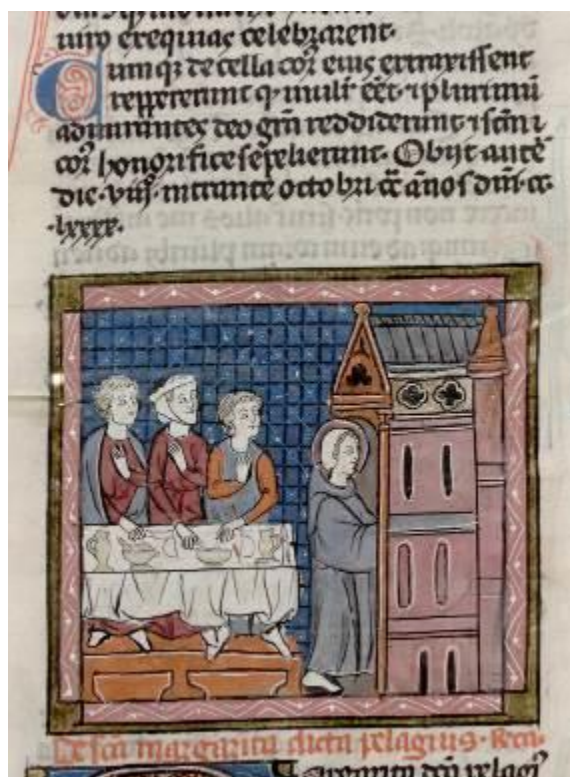 uiro exequias celebrarent.
Cumq; de cella cor̄ eius extraxissent
repperierunt q muliēr eēt. ⁊ plurimū
admirantes deo grā reddiderunt ⁊ scm̄
cor̄ honorifice sepelierunt. Obijt autē
die .viij. intrante octobri cc̄ anos dn̄i cc.
lxxxx.
De sca margarita dicta pelagius. Rca.
argarita dcā pelagi⁹